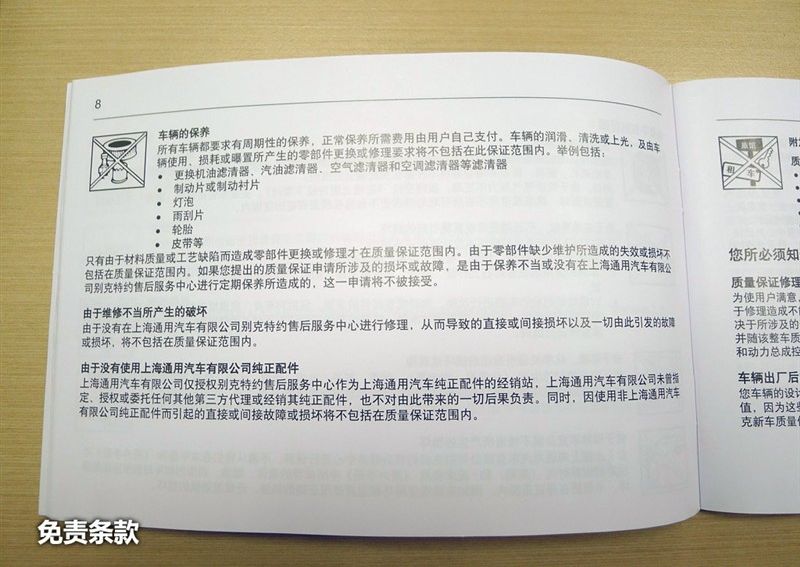 8
车辆的保养
所有车辆都要求有周期性的保养，正常保养所需费用由用户自己支付。车辆的润滑、清洗或上光，及由车
辆使用、损耗或曝置所产生的零部件更换或修理要求将不包括在此保证范围内。举例包括：
• 更换机油滤清器、汽油滤清器、空气滤清器和空调滤清器等滤清器
• 制动片或制动衬片
• 灯泡
• 雨刮片
• 轮胎
• 皮带等
只有由于材料质量或工艺缺陷而造成零部件更换或修理才在质量保证范围内。由于零部件缺少维护所造成的失效或损坏不
包括在质量保证范围内。如果您提出的质量保证申请所涉及的损坏或故障，是由于保养不当或没有在上海通用汽车有限公
司别克特约售后服务中心进行定期保养所造成的，这一申请将不被接受。
由于维修不当所产生的破坏
由于没有在上海通用汽车有限公司别克特约售后服务中心进行修理，从而导致的直接或间接损坏以及一切由此引发的故障
或损坏，将不包括在质量保证范围内。
由于没有使用上海通用汽车有限公司纯正配件
上海通用汽车有限公司仅授权别克特约售后服务中心作为上海通用汽车纯正配件的经销站，上海通用汽车有限公司未曾指
定、授权或委托任何其他第三方代理或经销其纯正配件，也不对由此带来的一切后果负责。同时，因使用非上海通用汽车
有限公司纯正配件而引起的直接或间接故障或损坏将不包括在质量保证范围内。
旅馆
租
车
附
质
•
•
•
您所必须知
质量保证修理
为使用户满意，
于修理造成不
决于所涉及的
并随该整车质
和动力总成控
车辆出厂后
您车辆的设计
值，因为这些
克新车质量保
免责条款